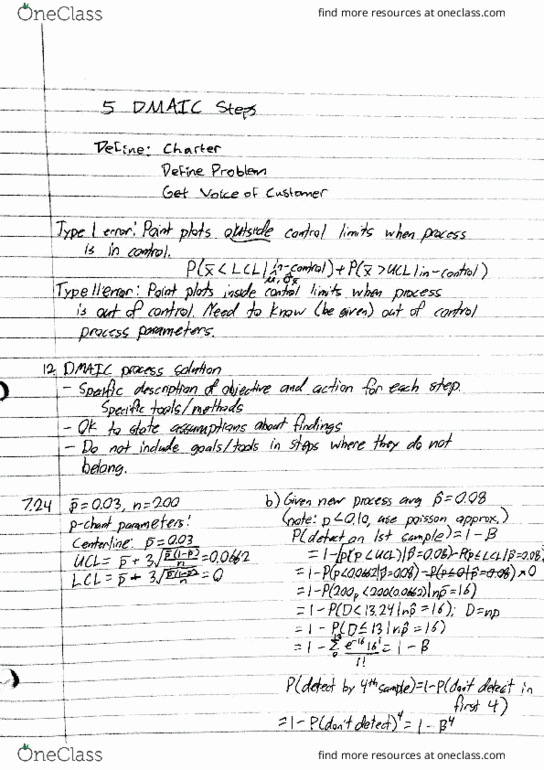 OneClass
find more resources at oneclass.com
5 DMAIC Steps
Define: Charter
Define Problem
Get Voice of Customer
Type I error: Point plots outside control limits when process
is in control.
P(x̄ < LCL | in-control) + P(x̄ > UCL | in-control)
μ, σx̄
Type II error: Point plots inside control limits when process
is out of control. Need to know (be given) out of control
process parameters.
12. DMAIC process solution
- Specific description of objective and action for each step.
Specific tools/methods
- OK to state assumptions about findings
- Do not include goals/tools in steps where they do not
belong.
7.24 p̄ = 0.03, n = 200
p-chart parameters:
Centerline: p̄ = 0.03
UCL = p̄ + 3√(p̄(1-p̄)/n) = 0.0662
LCL = p̄ - 3√(p̄(1-p̄)/n) = 0
b) Given new process avg p̂ = 0.08
(note: p < 0.10, use poisson approx.)
P(detect on 1st sample) = 1 - B
= 1 - [p(p̂ < UCL) | p̂ = 0.08) - P(p ≤ LCL | p̂ = 0.08)
= 1 - P(p < 0.0662 | p̂ = 0.08) - P(p ≤ 0 | p̂ = 0.08) 0
= 1 - P(200p < 200(0.0662) | np̂ = 16)
= 1 - P(D < 13.24 | np̂ = 16); D = np
= 1 - P(D ≤ 13 | np̂ = 16)
= 1 - Σ e^-16 16^i / i! = 1 - B
P(detect by 4th sample) = 1 - P(don't detect in
first 4)
= 1 - P(don't detect)^4 = 1 - B^4
OneClass
find more resources at oneclass.com